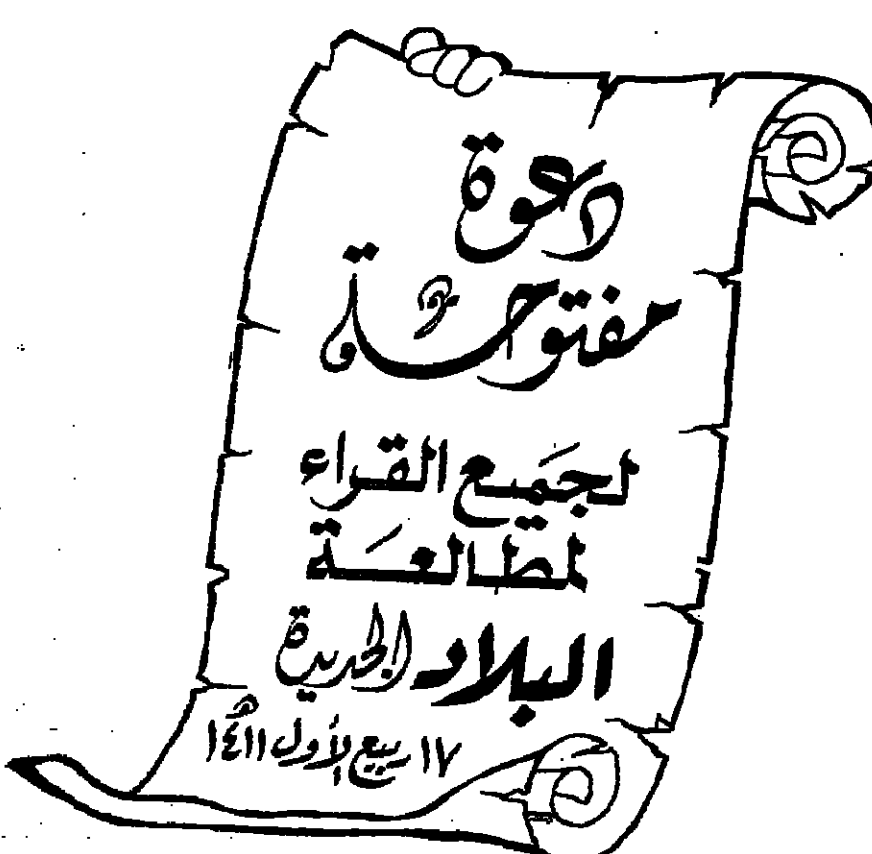 دعوة
مفتوحة
لجميع القراء
لمطالعة
البلاد الجديدة
١٧ ربيع الأول ١٤١١ هـ